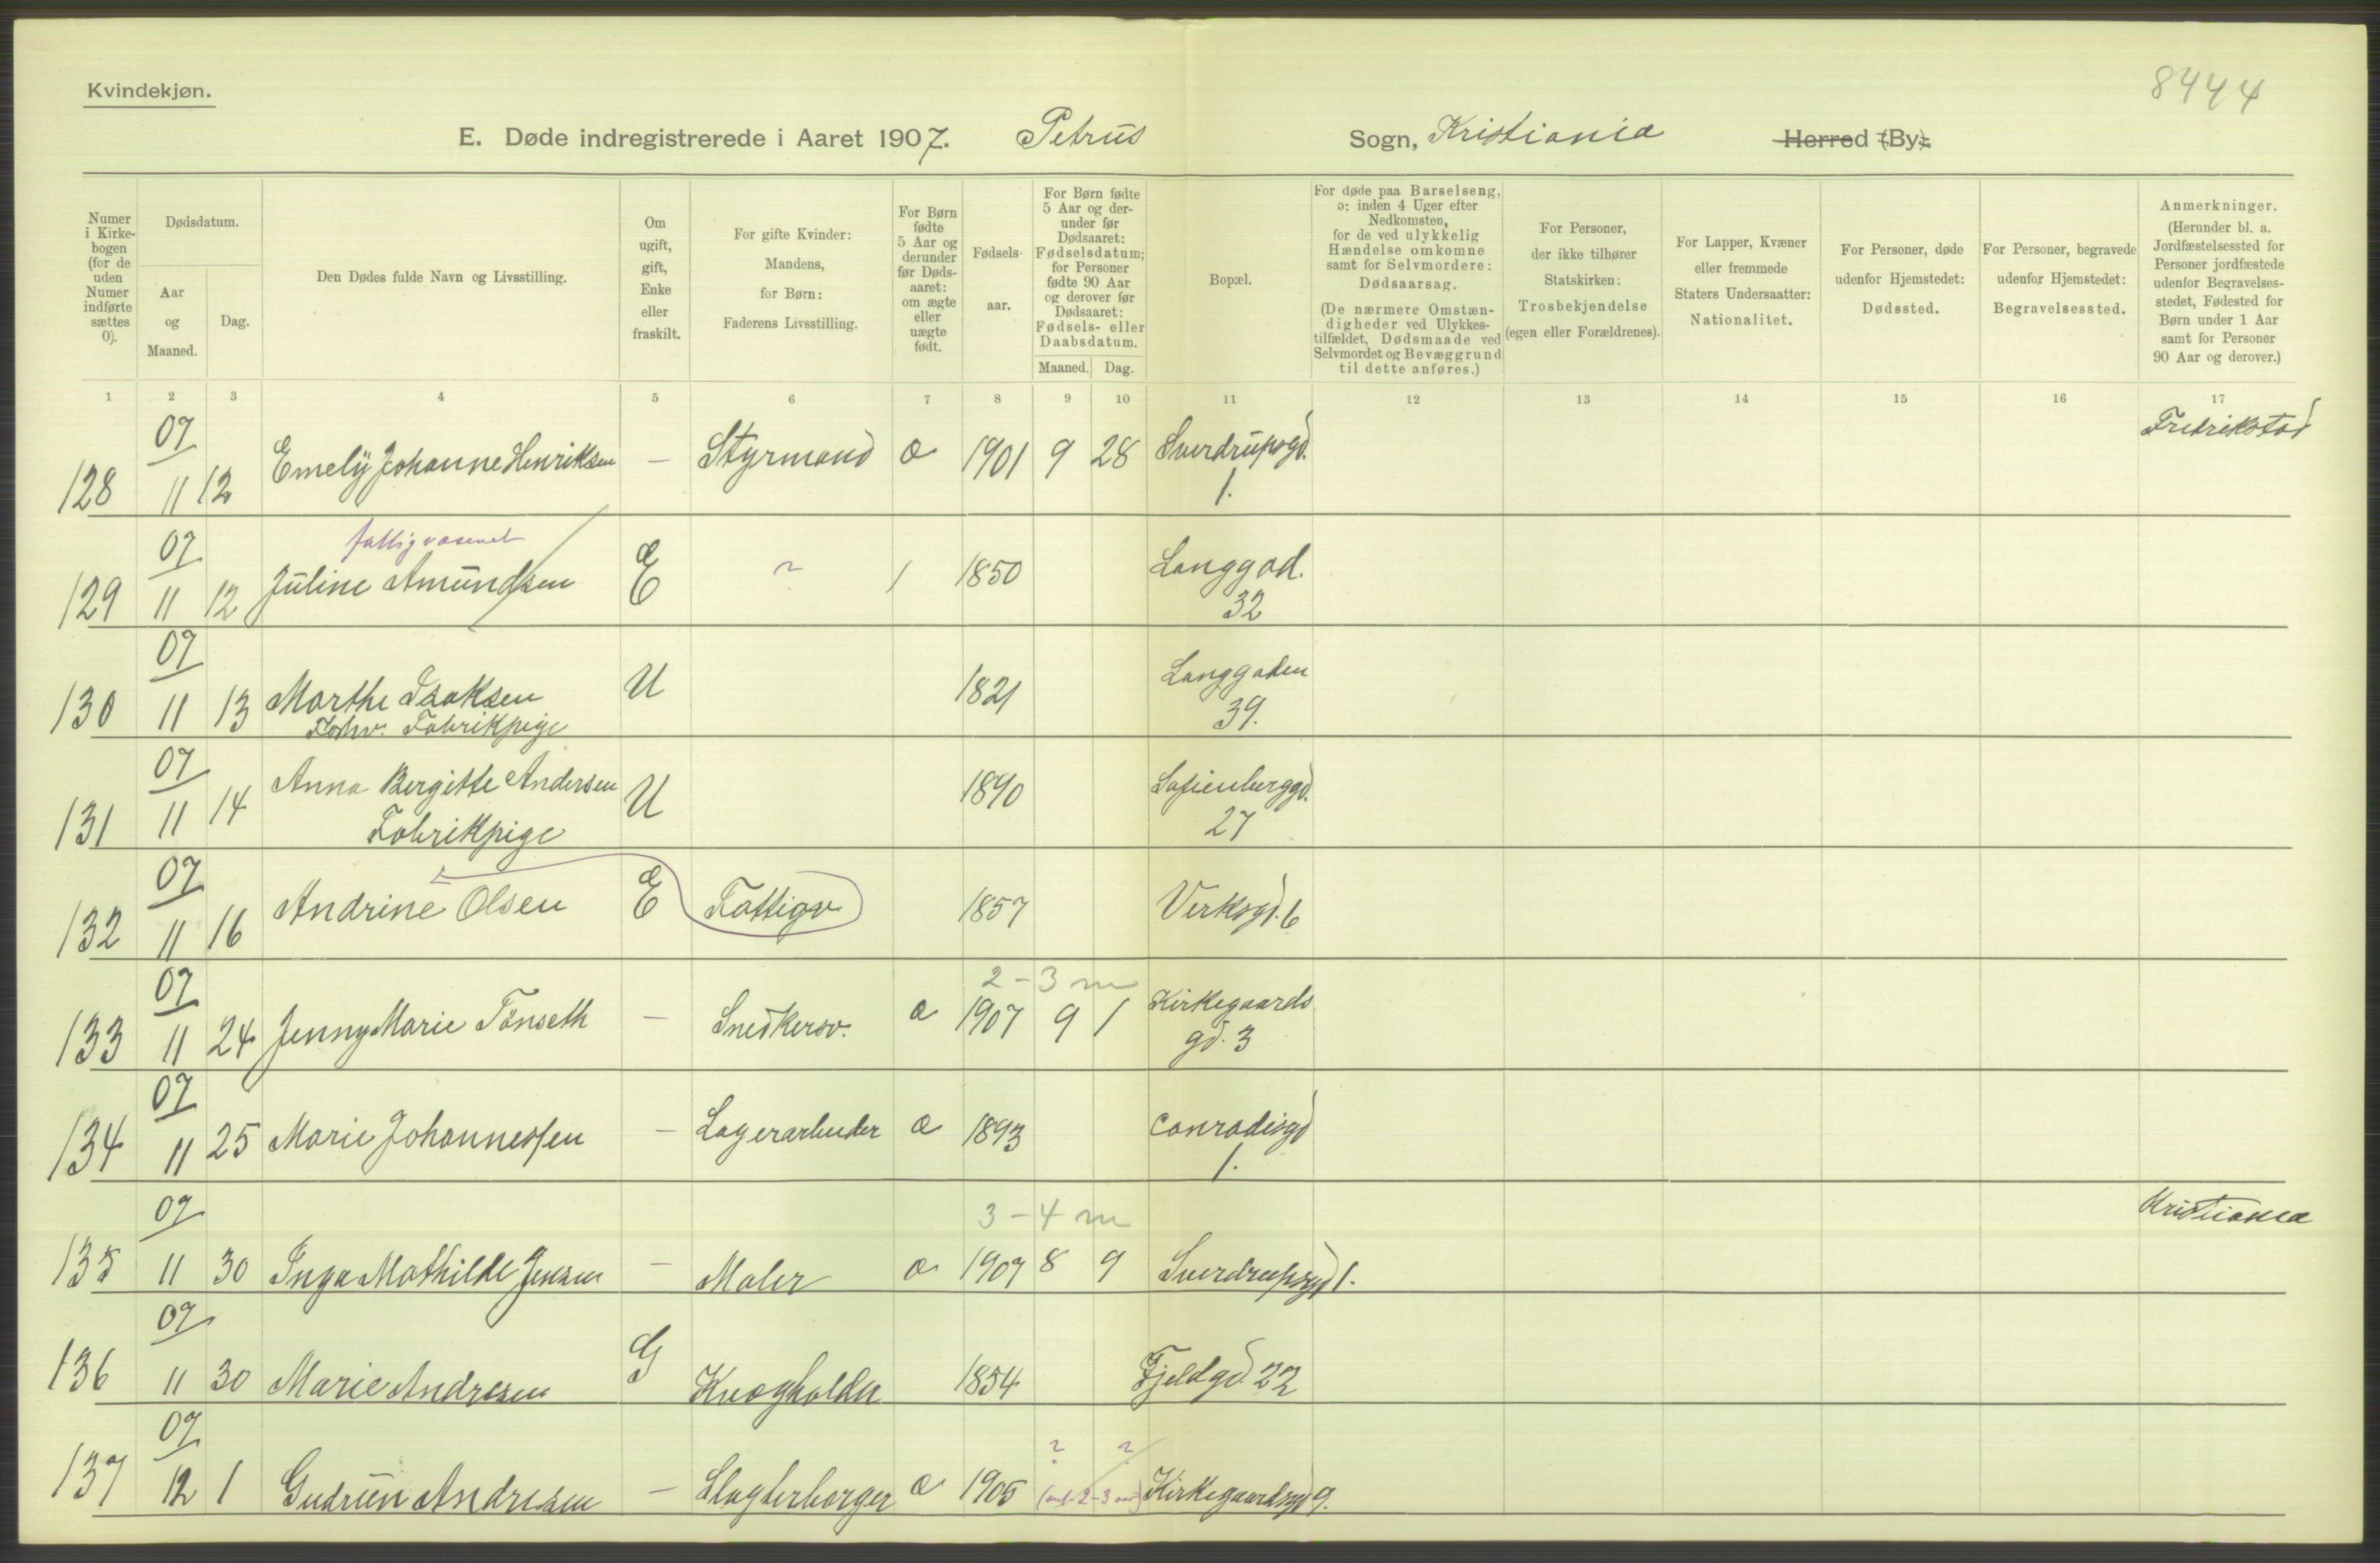 Kvindekjøn.
8444
E. Døde indregistrerede i Aaret 1907. Petrus Sogn, Kristiania Herred (By).
Numer i Kirkebogen (for de uden Numer indførte sættes 0).
Dødsdatum.
Aar og Maaned.
Dag.
Den Dødes fulde Navn og Livsstilling.
Om ugift, gift, Enke eller fraskilt.
For gifte Kvinder: Mandens, for Børn: Faderens Livsstilling.
For Børn fødte 5 Aar og derunder før Dødsaaret: om ægte eller uægte født.
Fødselsaar.
For Børn fødte 5 Aar og derunder før Dødsaaret: Fødselsdatum; for Personer fødte 90 Aar og derover før Dødsaaret: Fødsels- eller Daabsdatum.
Maaned. Dag.
Bopæl.
For døde paa Barselseng, ɔ: inden 4 Uger efter Nedkomsten, for de ved ulykkelig Hændelse omkomne samt for Selvmordere: Dødsaarsag. (De nærmere Omstændigheder ved Ulykkestilfældet, Dødsmaade ved Selvmordet og Bevæggrund til dette anføres.)
For Personer, der ikke tilhører Statskirken: Trosbekjendelse (egen eller Forældrenes).
For Lapper, Kvæner eller fremmede Staters Undersaatter: Nationalitet.
For Personer, døde udenfor Hjemstedet: Dødssted.
For Personer, begravede udenfor Hjemstedet: Begravelsessted.
Anmerkninger. (Herunder bl. a. Jordfæstelsessted for Personer jordfæstede udenfor Begravelsesstedet, Fødested for Børn under 1 Aar samt for Personer 90 Aar og derover.)
1 2 3 4 5 6 7 8 9 10 11 12 13 14 15 16 17
128 07 11 12 Emely Johanne Henriksen — Styrmand æ 1901 9 28 Sverdrupsgd. 1. Fredrikstad
fattigvæsenet
129 07 11 12 Juline Amundsen E ? / 1850 Langgad. 32
130 07 11 13 Marthe Isaksen U 1821 Langgaden 39.
Forhv. Fabrikpige
131 07 11 14 Anna Bergitte Andersen U 1890 Sofienberggd. 27
Fabrikpige
132 07 11 16 Andrine Olsen E Fattigv 1857 Verksgd. 6
2-3 m
133 07 11 24 Jenny Marie Tönseth — Snedkersv. æ 1907 9 1 Kirkegaards gd. 3
134 07 11 25 Marie Johannessen — Lagerarbeider æ 1893 Conradisgd 1.
3-4 m Kristiania
135 07 11 30 Inga Mathilde Jensen — Maler æ 1907 8 9 Sverdrupsgd 1.
136 07 11 30 Marie Andresen G Kvægholder 1854 Fjeldgd. 22
? ?
137 07 12 1 Gudrun Andresen — Slagterborger æ 1905 Kirkegaardsgd 9.